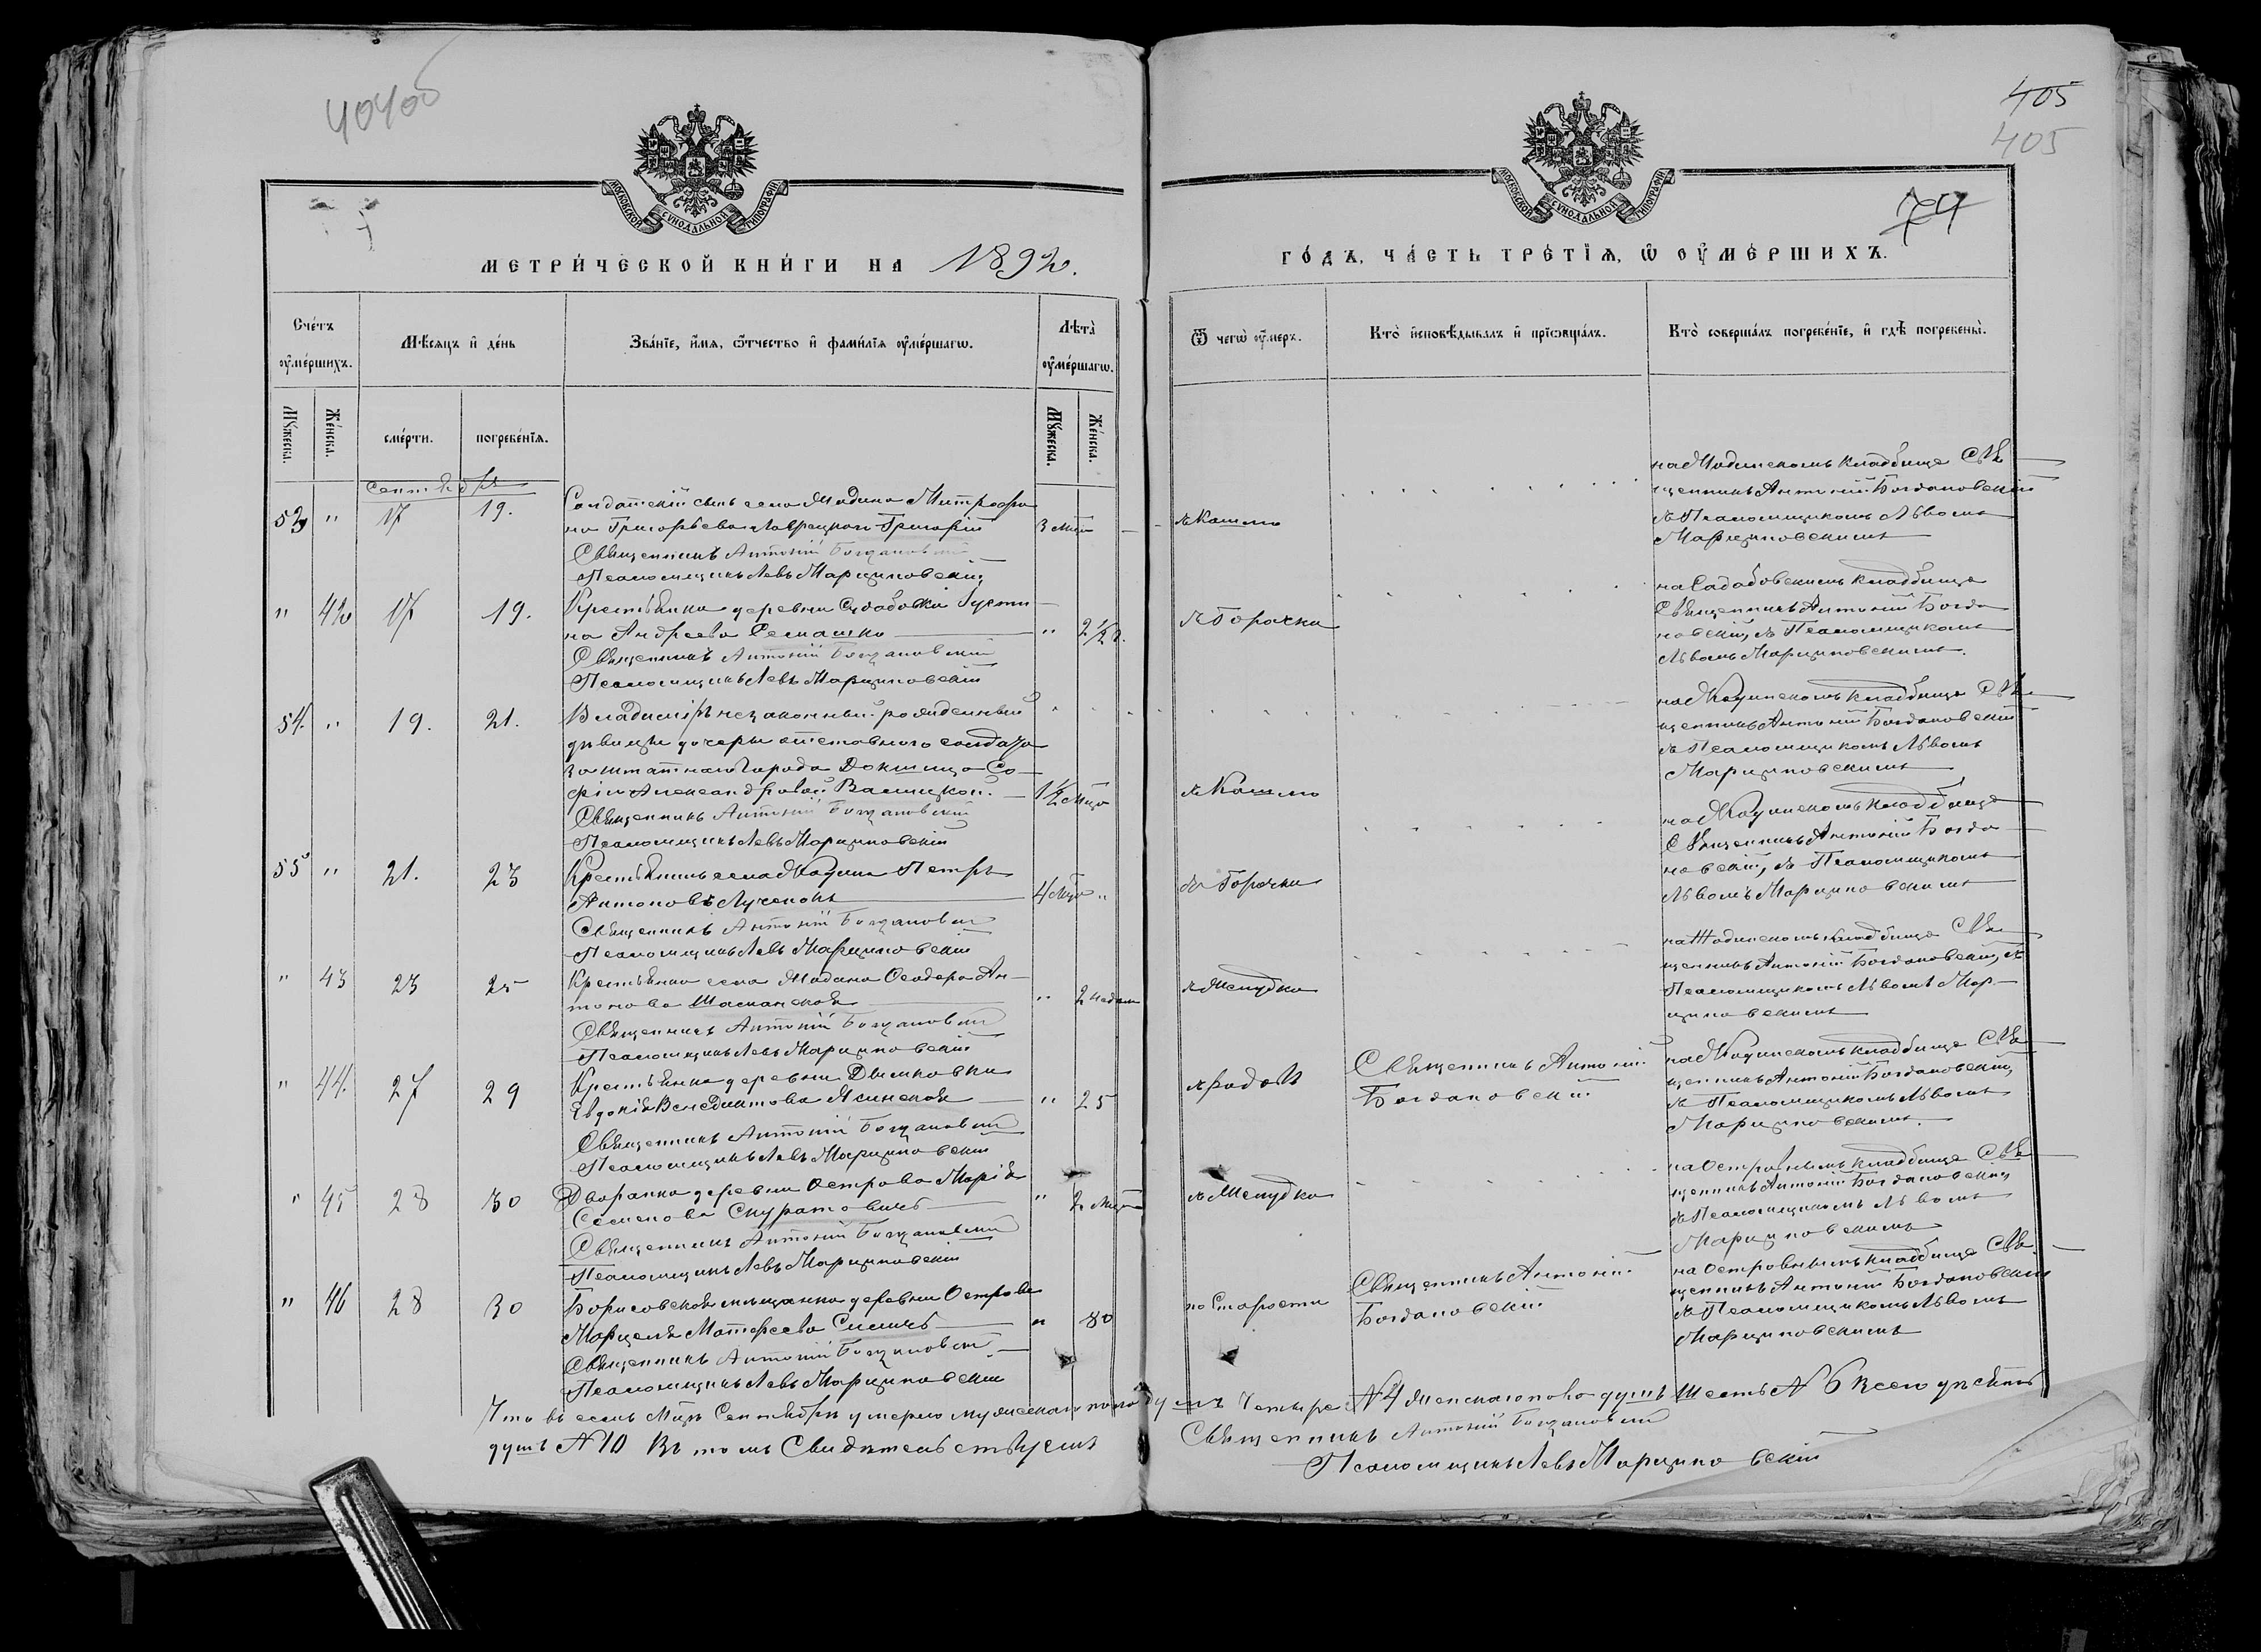 404об
405
405
79
МОСКОВСКОЙ СѴНОДАЛЬНОЙ ТИПОГРАФІИ
МОСКОВСКОЙ СѴНОДАЛЬНОЙ ТИПОГРАФІИ
МЕТРИ́ЧЕСКОЙ КНИ́ГИ НА 1892.
ГО́ДЪ, ЧА́СТЬ ТРЕ́ТІѦ, Ѡ ОУМЕ́РШИХЪ.
Сче́тъ оуме́ршихъ.
Мѣ́сяцъ и де́нь
Зва́нїе, и́мѧ, ѻ҆́тчество и фами́лїѧ оуме́ршагѡ.
Лѣта̀ оуме́ршагѡ.
Ѿ чегѡ̀ оу́меръ.
Кто̀ исповѣ́дывалъ и прїѡбща́лъ.
Кто̀ соверша́лъ погребе́нїе, и гдѣ̀ погребены̀.
Мꙋ́жеска.
Же́нска.
сме́рти.
погребе́нїѧ.
Мꙋ́жеска.
Же́нска.
Сентябрь
53 " 17 19.
Солдатскій сынъ села Жодина Митрофа
на Григорьева Лаврецкаго Григорій
3 мѣс.
Священникъ Антоній Богдановскій
Псаломщикъ Левъ Марциновскій
Кашлю
на Жодинскомъ кладбище Свя
щенникъ Антоній Богдановскій
съ Псаломщикомъ Львомъ
Марциновскимъ
" 42 17 19.
Крестьянка деревни Судобовки Густи
на Андреева Семашко
" 2 1/2 г.
Священникъ Антоній Богдановскій
Псаломщикъ Левъ Марциновскій
Горячки
кладбище
Священникъ Антоній Богда
новскій, съ Псаломщикомъ
Львомъ Марциновскимъ.
54. " 19. 21.
Владиміръ незаконный рожденный
дѣвицы дочери отставного солдата
заштатнаго города Докшицъ Со
фіи Александровой Валицкой.
1 1/2 мѣс.
Священникъ Антоній Богдановскій
Псаломщикъ Левъ Марциновскій
Кашлю
на Жодинскомъ кладбище Свя
щенникъ Антоній Богдановскій
съ Псаломщикомъ Львомъ
Марциновскимъ
55 " 21. 23
Крестьянинъ села Жодина Петръ
Антоновъ Лученокъ
4 мѣс. "
Священникъ Антоній Богдановскій
Псаломщикъ Левъ Марциновскій
Горячки
на Жодинскомъ кладбище
Священникъ Антоній Богда
новскій, съ Псаломщикомъ
Львомъ Марциновскимъ
" 43 23 25
Крестьянка села Жодина Ѳеодора Ан
тонова
" 2 недѣли
Священникъ Антоній Богдановскій
Псаломщикъ Левъ Марциновскій
Желудка
на Жодинскомъ кладбище Свя
щенникъ Антоній Богдановскій, съ
Псаломщикомъ Львомъ Мар
циновскимъ
" 44. 27 29
Крестьянка деревни Дымковки
Евдокія Венедиктова Ясинская
" 25
Священникъ Антоній Богдановскій
Псаломщикъ Левъ Марциновскій
Священникъ Антоній
Богдановскій
на Жодинскомъ кладбище Свя
щенникъ Антоній Богдановскій,
съ Псаломщикомъ Львомъ
Марциновскимъ.
" 45 28 30
Дворянка деревни Острова Марія
Семенова Скуратовичъ
" 2 мѣс.
Священникъ Антоній Богдановскій
Псаломщикъ Левъ Марциновскій
Желудка
на Островскомъ кладбище Свя
щенникъ Антоній Богдановскій,
съ Псаломщикомъ Львомъ
Марциновскимъ
" 46 28 30
Борисовская мѣщанка деревни Острова
Марцеля Матѳеева
" 80
Священникъ Антоній Богдановскій
Псаломщикъ Левъ Марциновскій
по Старости
Священникъ Антоній
Богдановскій
на Островскомъ кладбище Свя
щенникъ Антоній Богдановскій
съ Псаломщикомъ Львомъ
Марциновскимъ
Что въ семъ мѣсяцѣ Сентябрѣ умерло мужескаго пола душъ Четыре №4 женскаго пола душъ Шесть №6 Всего умершихъ
душъ №10 Въ томъ Свидѣтельствуемъ
Священникъ Антоній Богдановскій
Псаломщикъ Левъ Марциновскій